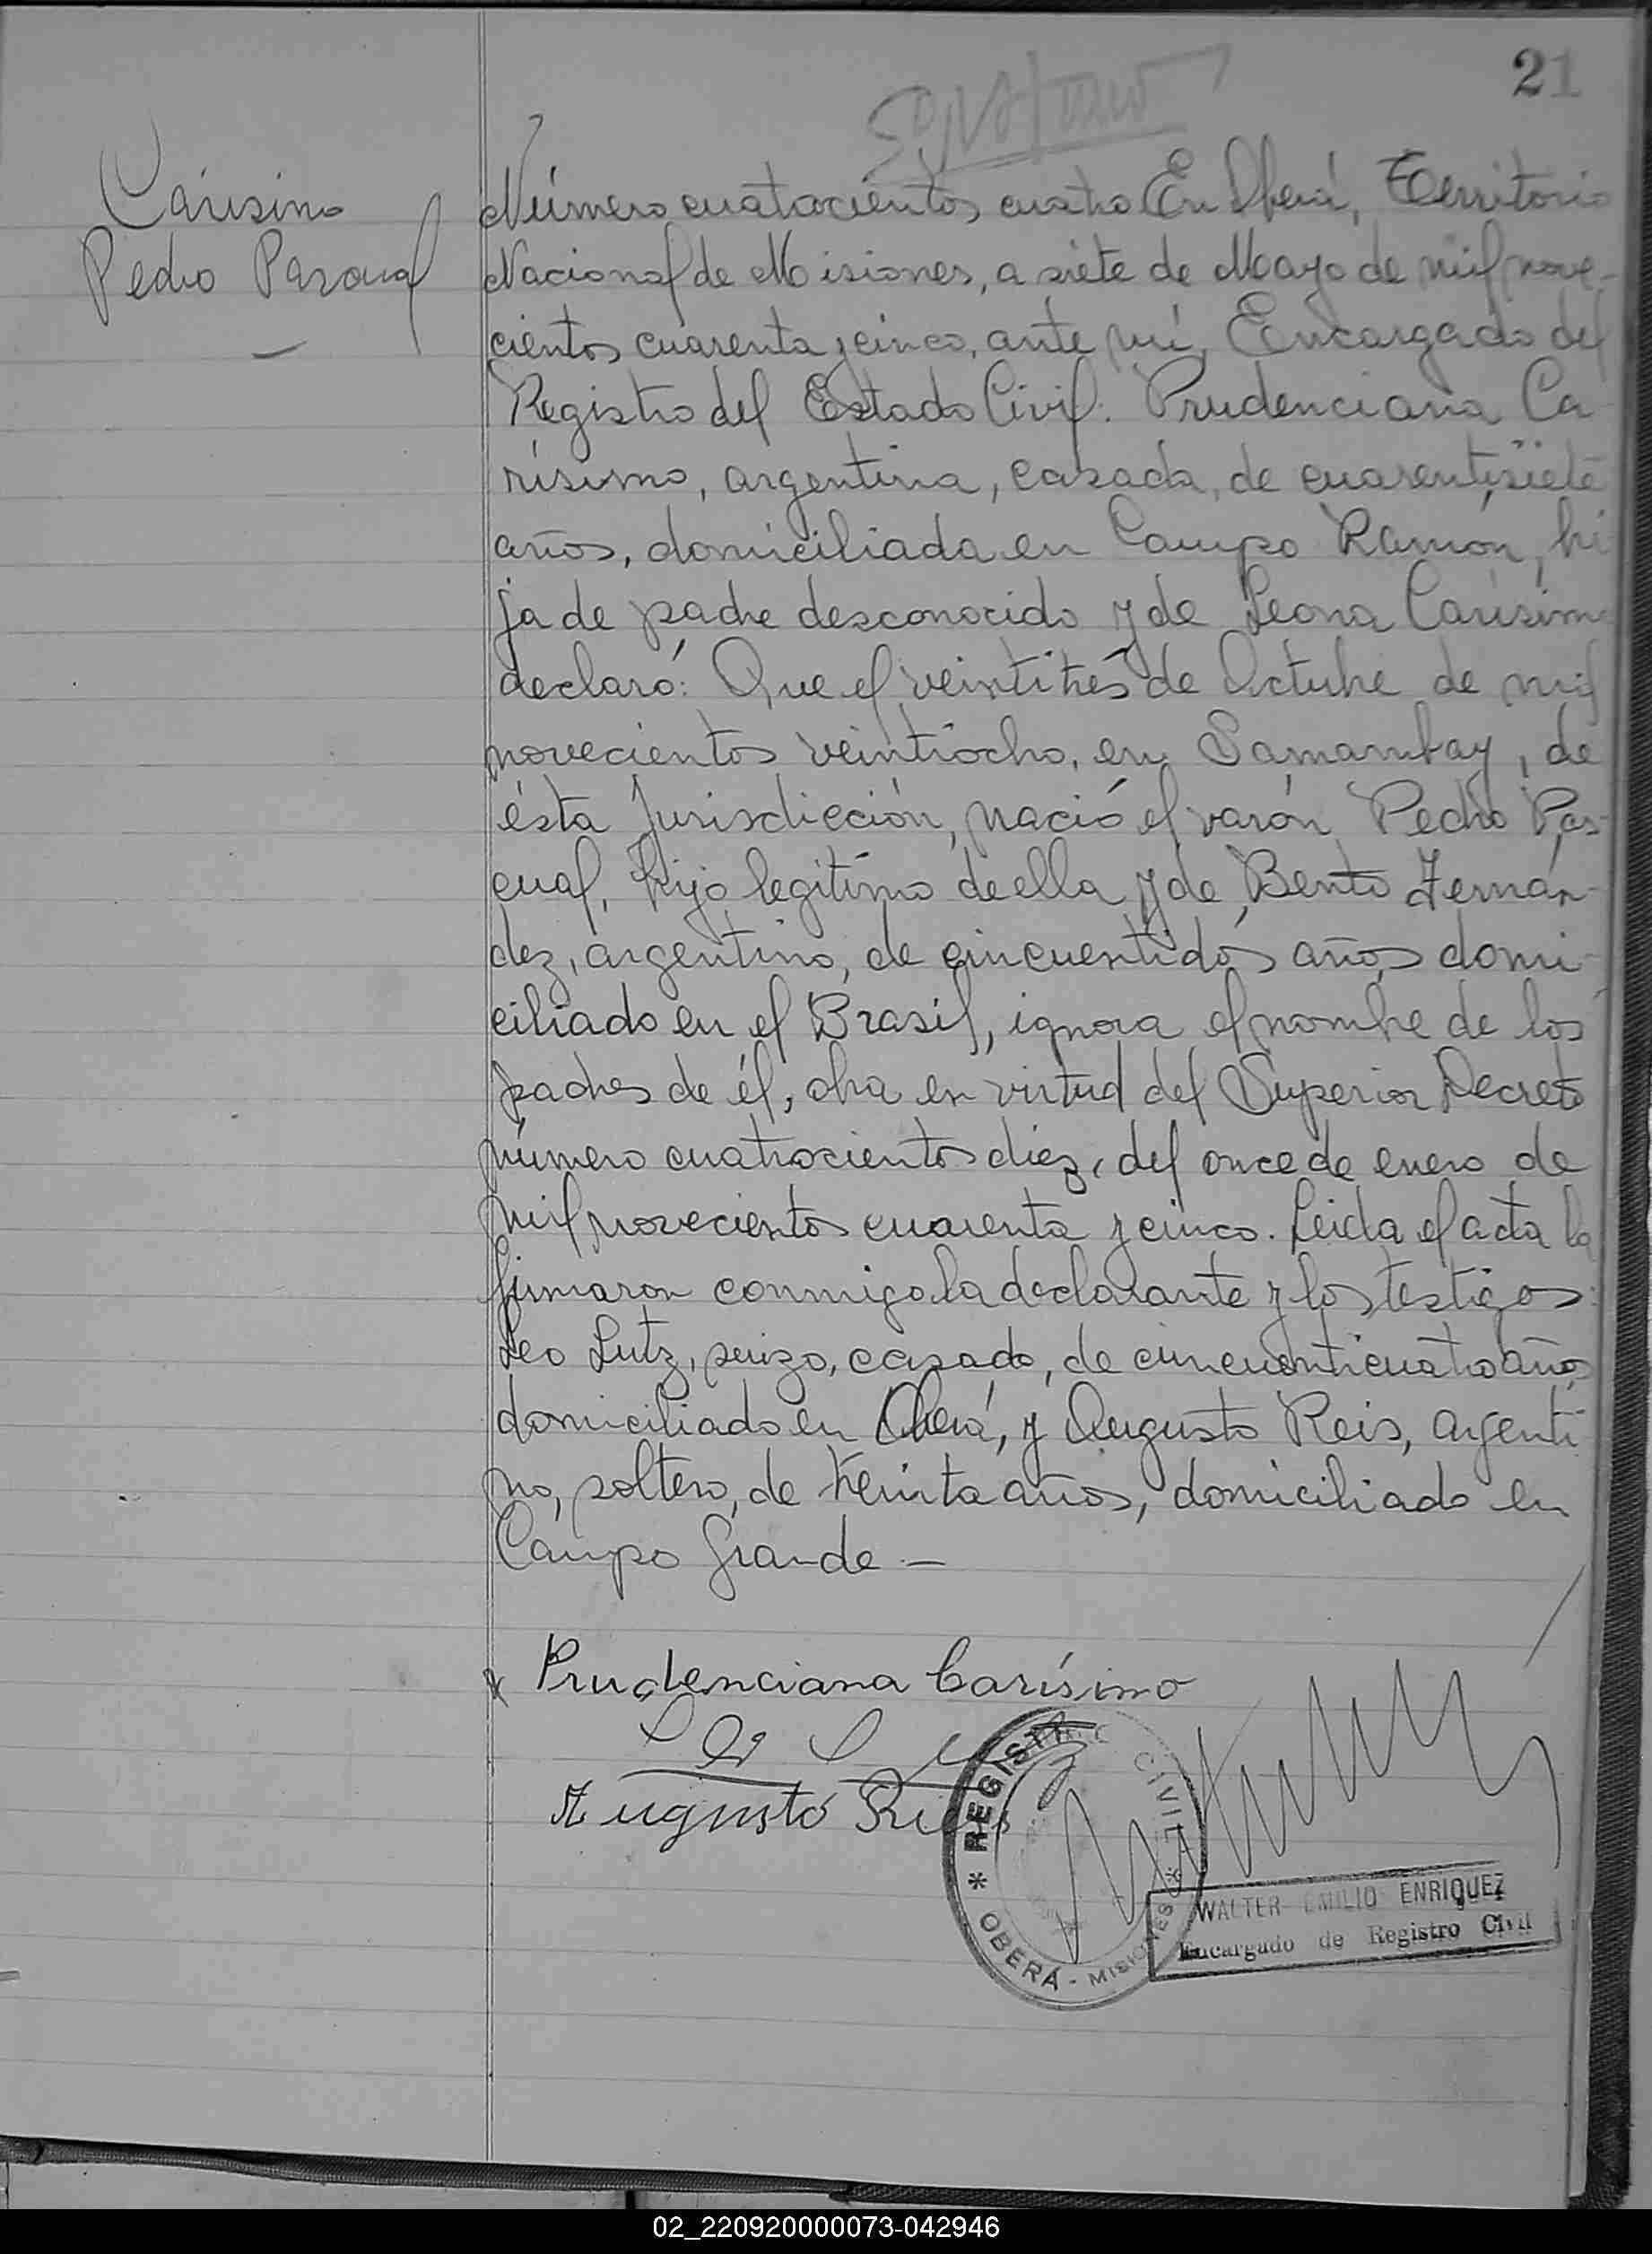 21
Carísimo
Pedro Pascual
Número cuatrocientos cuatro En Oberá, Territorio
Nacional de Misiones, a siete de Mayo de mil nove-
cientos cuarenta y cinco, ante mí, Encargado del
Registro del Estado Civil: Prudenciana Ca
rísimo, argentina, casada, de cuarentisiete
años, domiciliada en Campo Ramón, hi
ja de padre desconocido y de Leona Carísimo
declaró: Que el veintitrés de Octubre de mil
novecientos veintiocho, en Samambay, de
ésta Jurisdicción, nació el varón Pedro Pas-
cual, hijo legítimo de ella y de Bento Fernán-
dez, argentino, de cincuentidós años domi-
ciliado en el Brasil, ignora el nombre de los
padres de él, obra en virtud del Superior Decreto
número cuatrocientos diez, del once de enero de
mil novecientos cuarenta y cinco. Leida el acta la
firmaron conmigo la declarante y los testigos:
Leo Lutz, suizo, casado, de cincuenticuatro años
domiciliado en Oberá, y Augusto Reis, argenti
no, soltero, de treinta años, domiciliado en
Campo Grande.—
x Prudenciana Carísimo
Augusto Reis
REGISTRO CIVIL
* OBERÁ - MISIONES *
WALTER EMILIO ENRIQUEZ
Encargado de Registro Civil
02_220920000073-042946